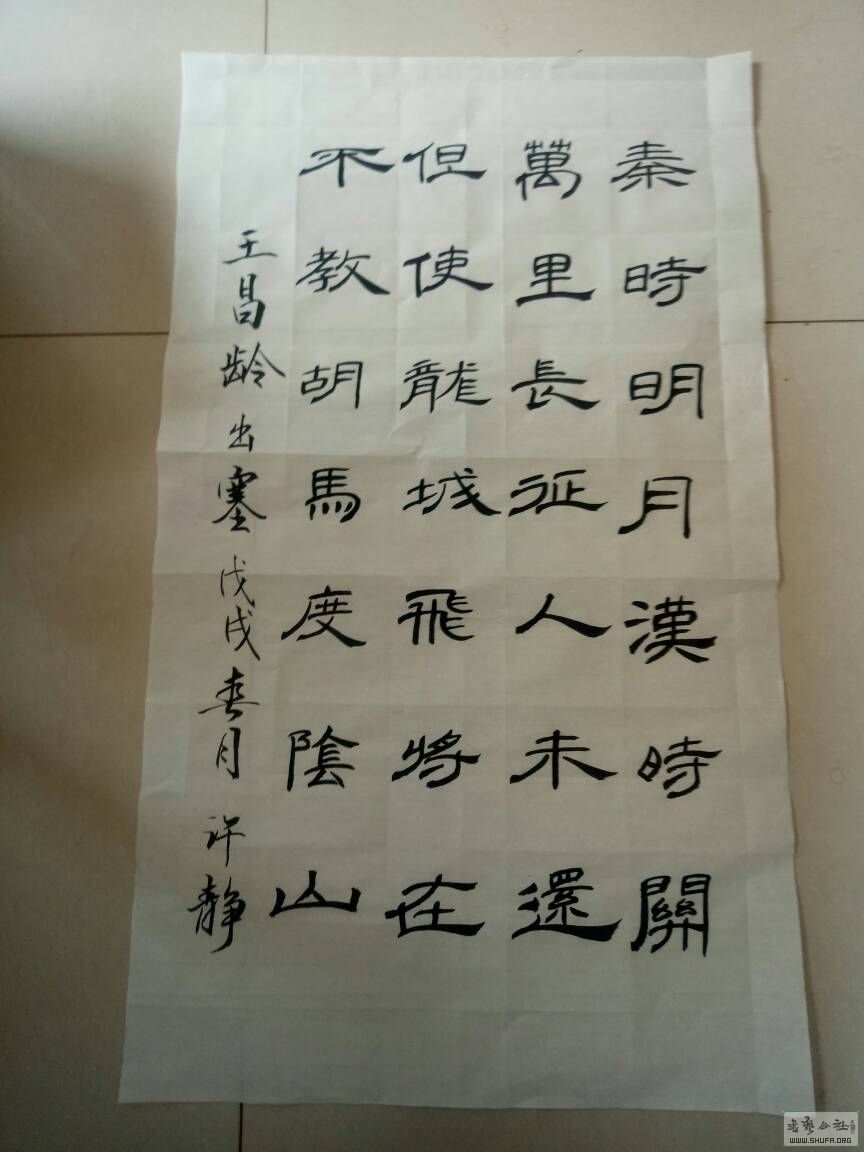 秦時明月漢時關
萬里長征人未還
但使龍城飛將在
不教胡馬度陰山
王昌龄出塞戊戌春月许静
书艺公社
WWW.SHUFA.ORG